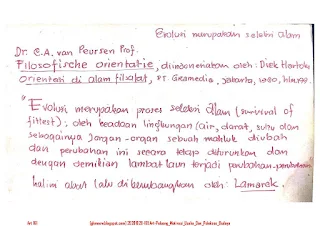 Evolusi merupakan seleksi alam
Dr. C.A. van Peursen Prof.
Filosofische orientatie, diindonesiakan oleh: Dick Hartoko
Orientasi di alam filsafat, PT. Gramedia, Jakarta, 1980, hlm.
"Evolusi merupakan proses seleksi Alam (survival of
fittest): oleh keadaan lingkungan (air, darat, suhu dan
sebagainya) organ-organ sebuah makhluk diubah
dan perubahan ini secara tetap diturunkan dan
dengan demikian lambat laun terjadi perubahan-perubahan.
hal ini lalu dikembangkan oleh: Lamarck.